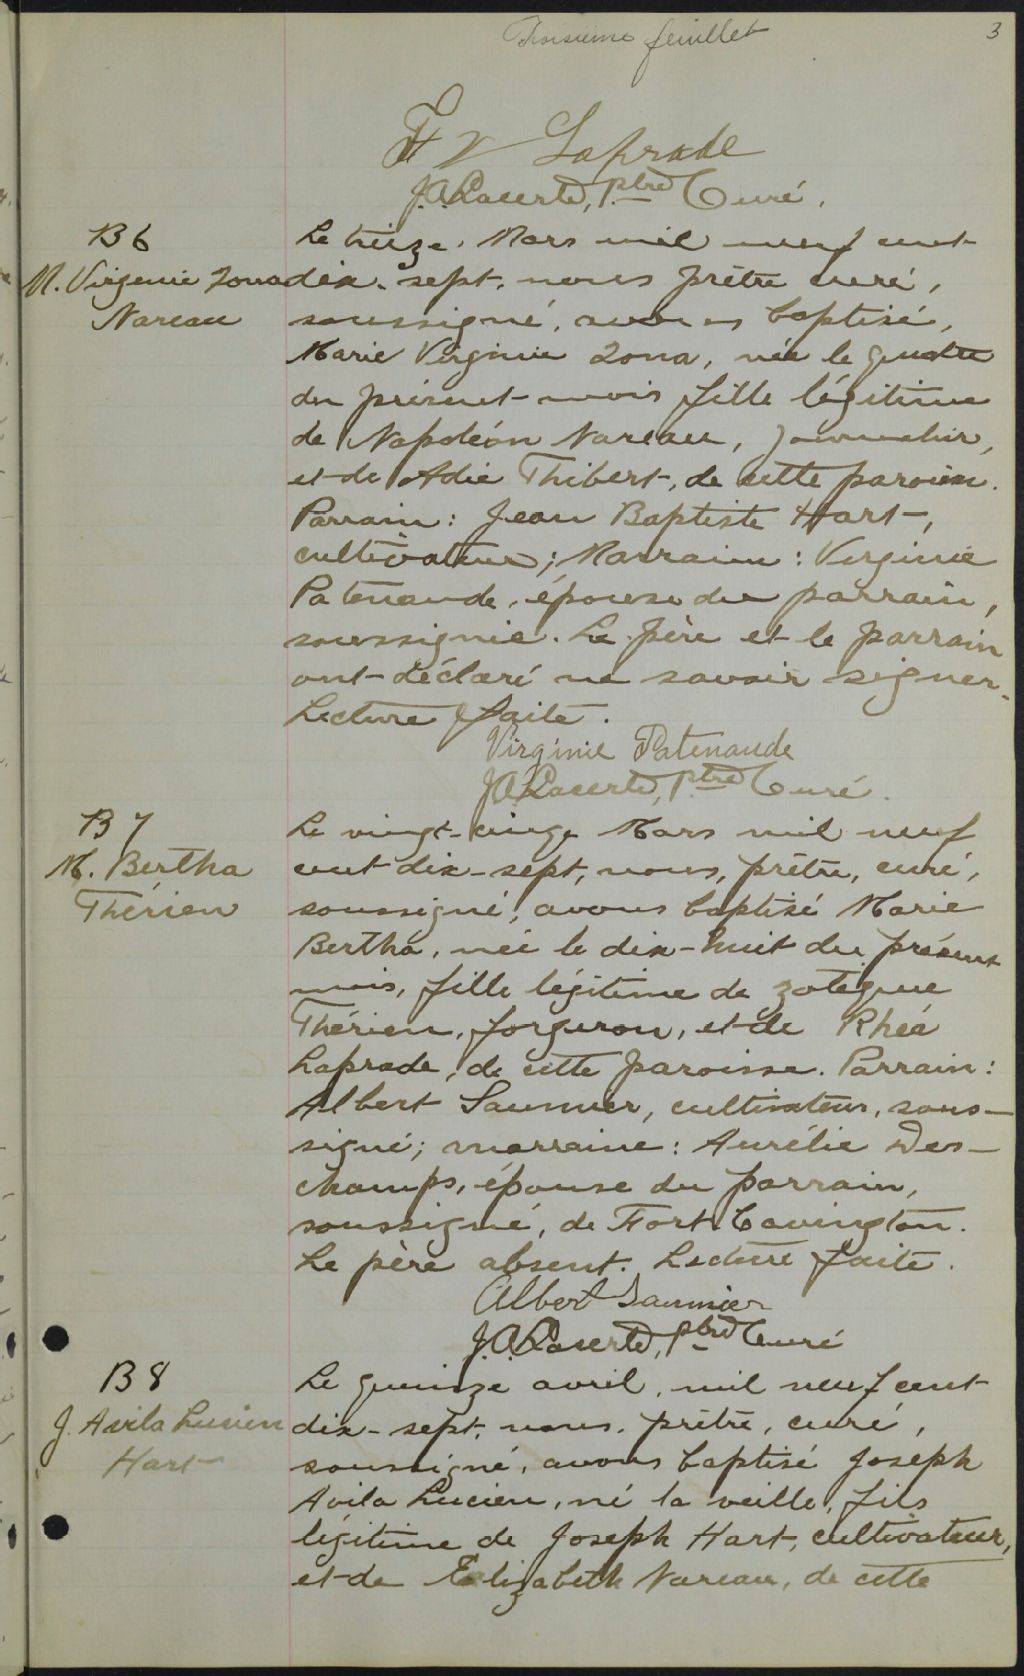 Troisième feuillet 3
F X Laprade
J.A. Lacerte, Ptre Curé.
B 6
M. Virginie Zona
Nareau
Le treize, Mars mil neuf cent
dix-sept, nous prêtre curé,
soussigné, avons baptisé,
Marie Virginie Zona, née le quatre
du présent mois fille légitime
de Napoléon Nareau, journalier,
et de Adie Thibert, de cette paroisse.
Parrain: Jean Baptiste Hart,
cultivateur; Marraine: Virginie
Patenaude, épouse du parrain,
soussignée. Le père et le parrain
ont déclaré ne savoir signer.
Lecture faite.
Virginie Patenaude
J.A. Lacerte, Ptre Curé.
B 7
M. Bertha
Thérien
Le vingt-cinq Mars mil neuf
cent dix-sept, nous, prêtre, curé,
soussigné, avons baptisé Marie
Bertha, née le dix-huit du présent
mois, fille légitime de Zotique
Thérien, forgeron, et de Rhéa
Laprade, de cette paroisse. Parrain:
Albert Saumier, cultivateur, sous-
signé; marraine: Aurélie Des-
champs, épouse du parrain,
soussigné, de Fort Covington.
Le père absent. Lecture faite.
Albert Saumier
J.A. Lacerte, Ptre Curé
B 8
J. Avila Lucien
Hart
Le quinze avril, mil neuf cent
dix-sept, nous, prêtre, curé,
soussigné, avons baptisé Joseph
Avila Lucien, né la veille, fils
légitime de Joseph Hart, cultivateur,
et de Elizabeth Nareau, de cette